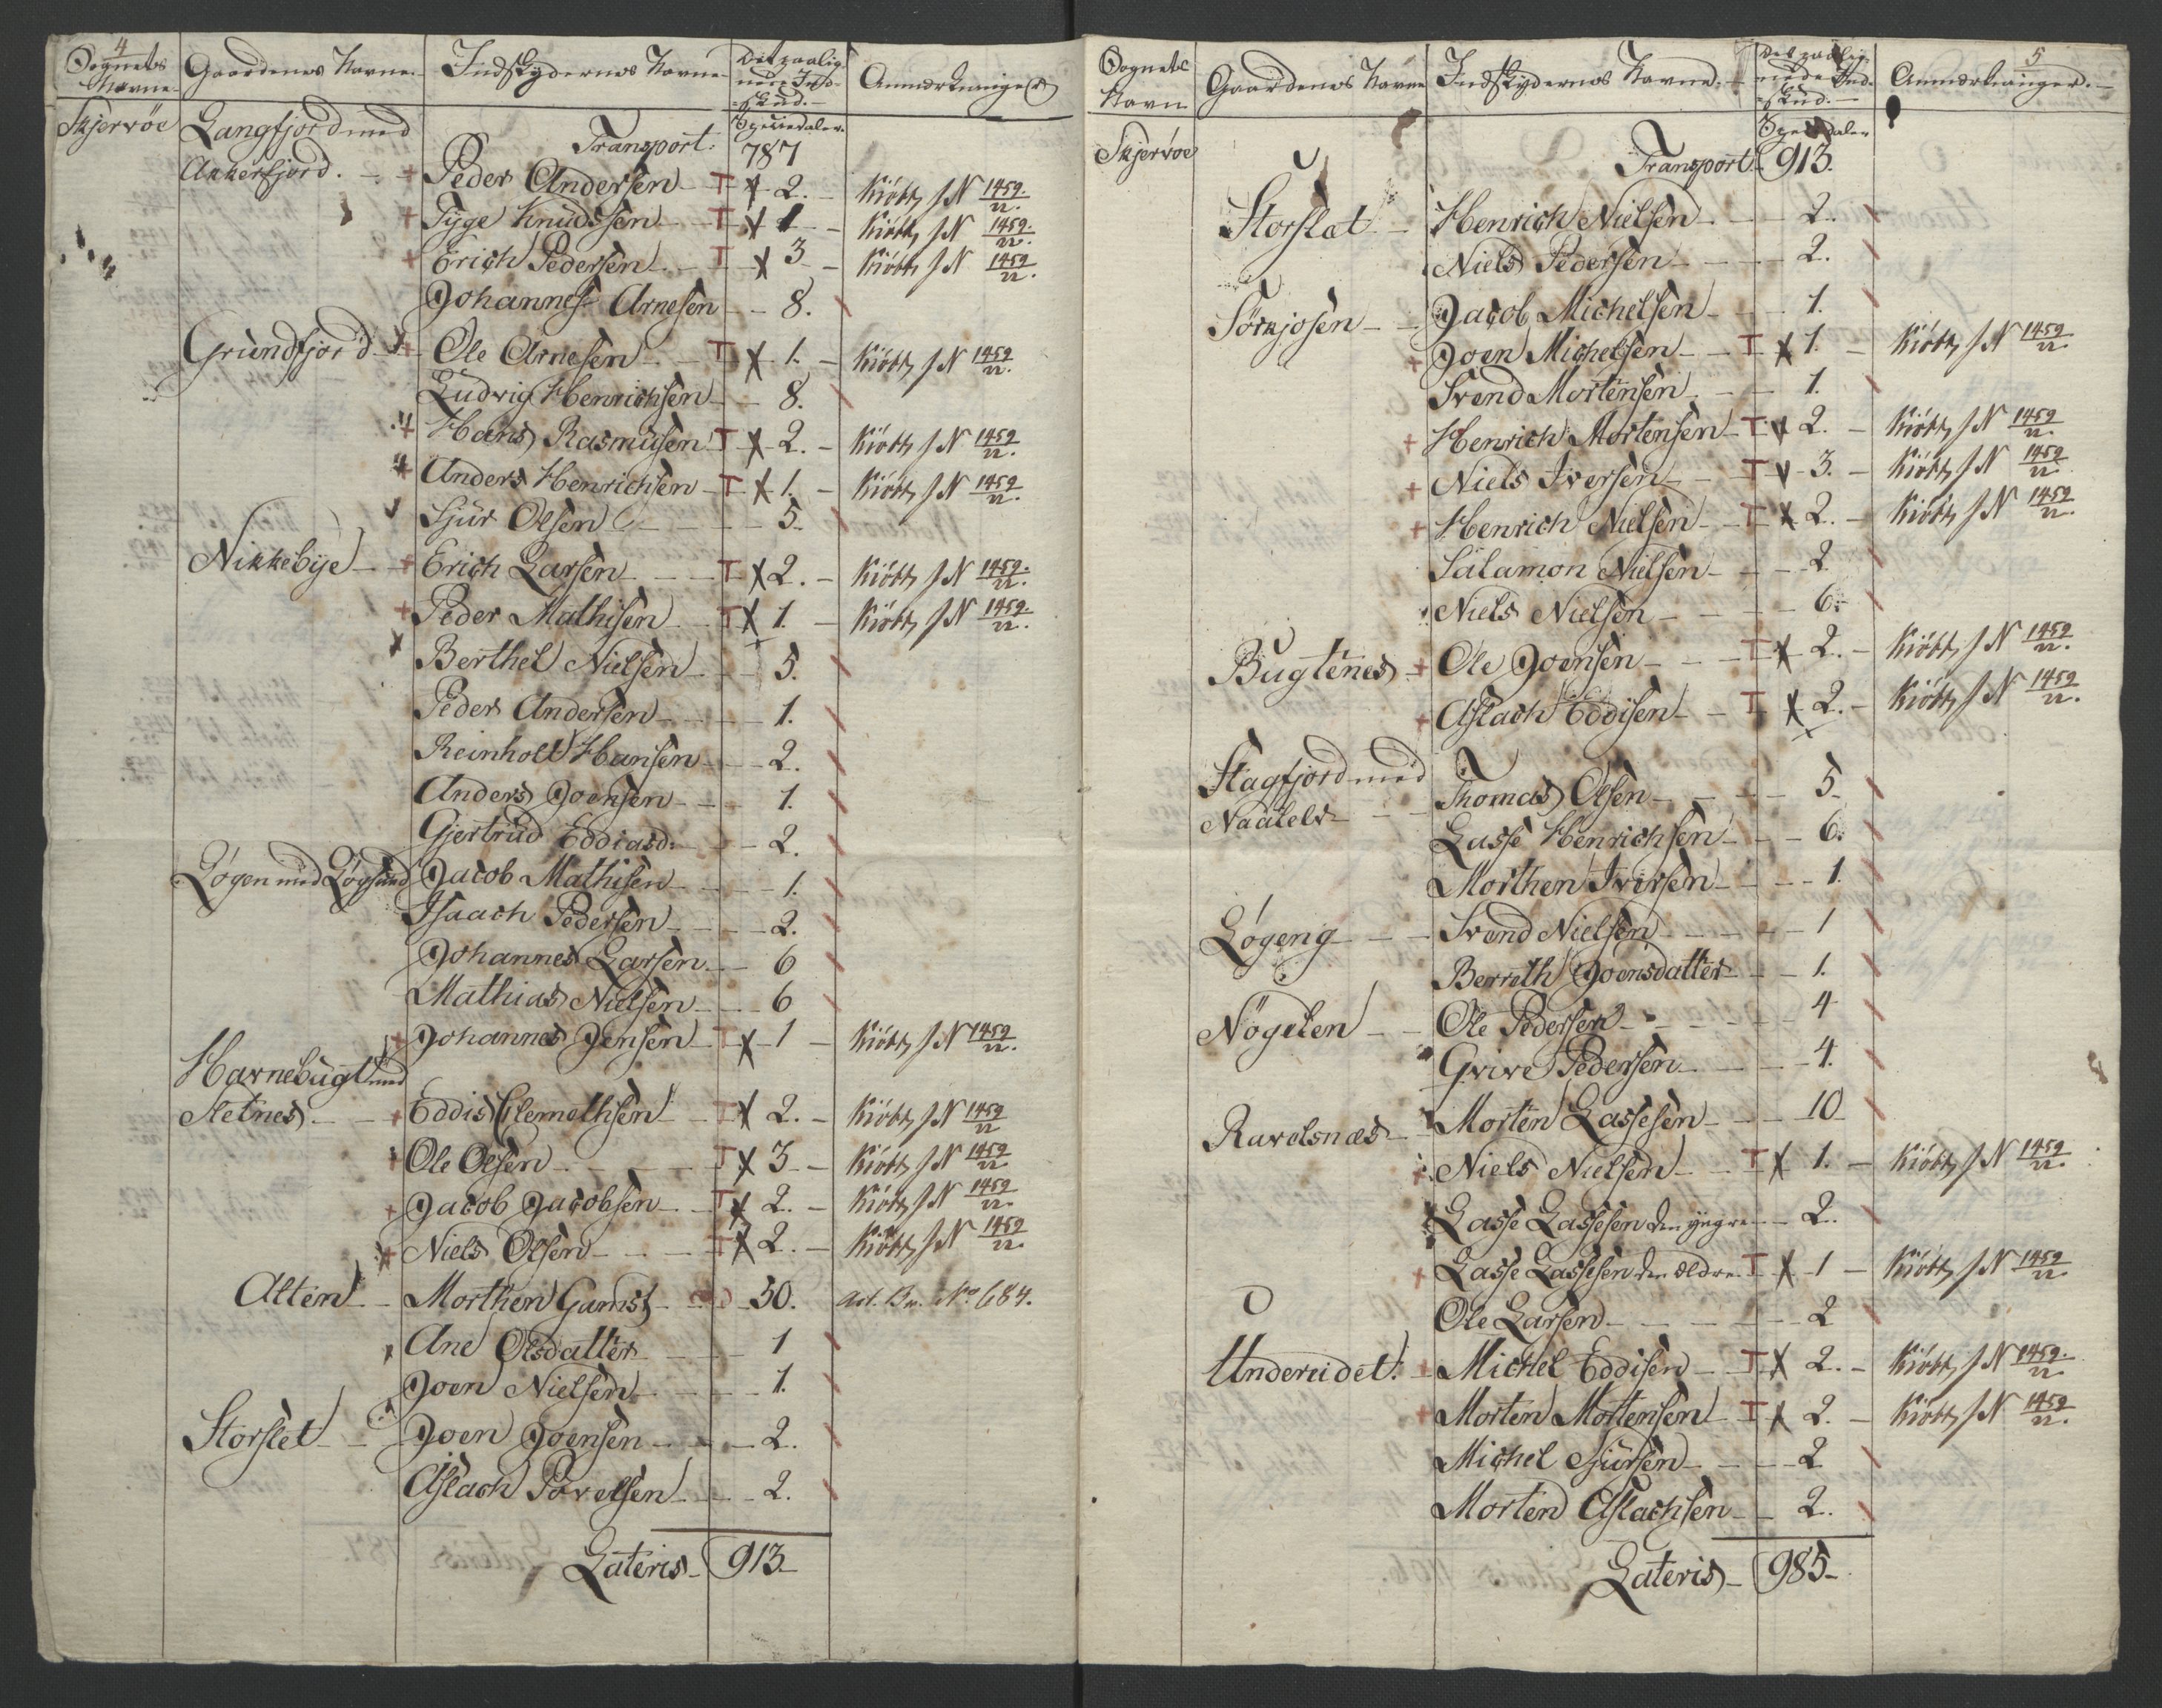 4
Sognets Navne Gaardenes Navne Indskydernes Navne Det paalignede Indskud. Anmærkninger
Speciedaler
Skjervöe Langfjord med Transport: 787
Akkerfjord. + Peder Andersen T X 2. Kiöbt J N 1459/n.
+ Tyge Knudssen T X 1 Kiöbt J N 1459/n.
+ Erich Pedersen T X 3 Kiöbt J N 1459/n.
Johannes Arnesen 8.
Grundfjord + Ole Arnesen T X 1. Kiöbt J N 1459/n.
Ludvig Henrichsen 8.
+ Hans Rasmusen T X 2. Kiöbt J N 1459/n.
+ Anders Henrichsen T X 1. Kiöbt J N 1459/n.
Sjur Olsen 5.
Nikkebye + Erich Larsen T X 2. Kiöbt J N 1459/n.
+ Peder Mathisen T X 1. Kiöbt J N 1459/n.
Berthel Nielsen 5.
Peder Andersen 1.
Reinholt Hansen 2.
Anders Joensen 1.
Gjertrud Eddiasd: 2.
Løgen med Løgsund Jacob Mathisen 1.
Isaach Pedersen 2.
Johannes Larsen 6
Mathias Nielsen 6
+ Johannes Jensen T X 1 Kiöbt J N 1459/n.
Havnebugt med
Sletnes + Eddis Clemethsen T X 2. Kiöbt J N 1459/n
+ Ole Olsen T X 3 Kiöbt J N 1459/n
+ Jacob Jacobsen T X 2. Kiöbt J N 1459/n.
+ Niels Olsen T X 2. Kiöbt J N 1459/n.
Alten Morthen Gamst 50. Act. Br. No 684.
Ane Olsdatter 1
Joen Nielsen 1.
Storslet Joen Joensen 2.
Aslach Povelsen 2.
Lateris 913
5
Sognets Navn Gaardenes Navne Indskydernes Navne. Det paalignede Indskud. Anmærkninger.
Speciedaler
Skjervöe Transport 913.
Storslat Henrich Nielsen 2.
Niels Pedersen 2.
Sörkjosen Jacob Michelsen 1.
+ Joen Michelsen T X 1. Kiöbt J N 1459/n.
Svend Mortensen 1.
+ Henrich Mortensen T X 2. Kiöbt J N 1459/n.
+ Niels Iversen T X 3. Kiöbt J N 1459/n.
+ Henrich Nielsen T X 2. Kiöbt J N 1459/n.
Salamon Nielsen 2
Niels Nielsen 6.
Bugtenes + Ole Joensen T X 2. Kiöbt J N 1459/n.
+ Aslach Eddisen T X 2. Kiöbt J N 1459/n.
Stagfjord med Thomas Olsen 5
Lasse Henrichsen 6.
Morthen Iversen 1.
Løgeng Svend Nielsen 1
Berreth Joensdatter 1.
Nögelen Ole Pedersen 4
Grive Pedersen 4.
Ravelsnæs Morten Lassesen 10
+ Niels Nielsen T X 1. Kiöbt J N 1459/n.
Lasse Lassesen den yngre 2.
+ Lasse Lassesen den ældre T X 1 Kiöbt J N 1459/n
Ole Larsen 2
Undereidet. + Michel Eddisen T X 2. Kiöbt J N 1459/n.
+ Morten Mortensen T X 2. Kiöbt J N 1459/n.
Michel Sjursen 2
Morten Aslachsen 2.
Lateris 985